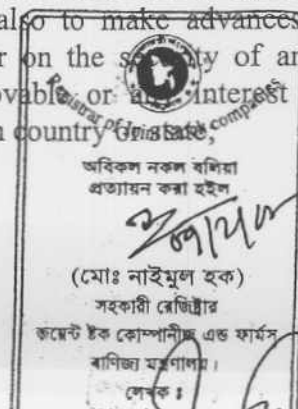 also to make advances
r on the security of an
ovable or any interest
n country or state,
Registrar of Joint Stock Companies
অবিকল নকল বলিয়া
প্রত্যায়ন করা হইল
(মোঃ নাইমুল হক)
সহকারী রেজিষ্ট্রার
জয়েন্ট ষ্টক কোম্পানীজ এন্ড ফার্মস
বাণিজ্য মন্ত্রণালয়।
লেখক ঃ